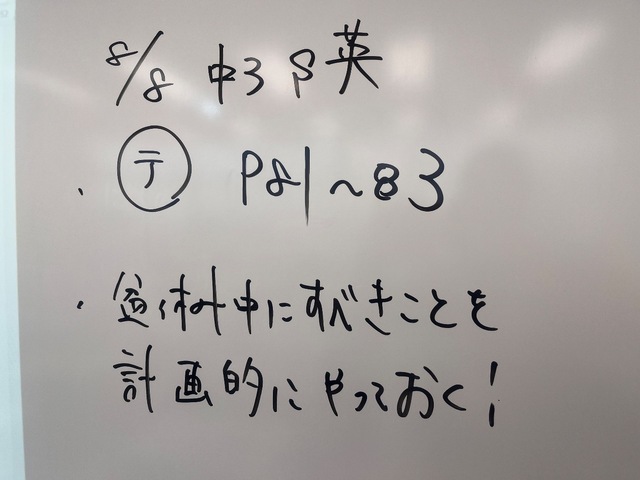 8/8 中3 S 英
・ テ P81~83
・ 盆休み中にすべきことを
計画的にやっておく!